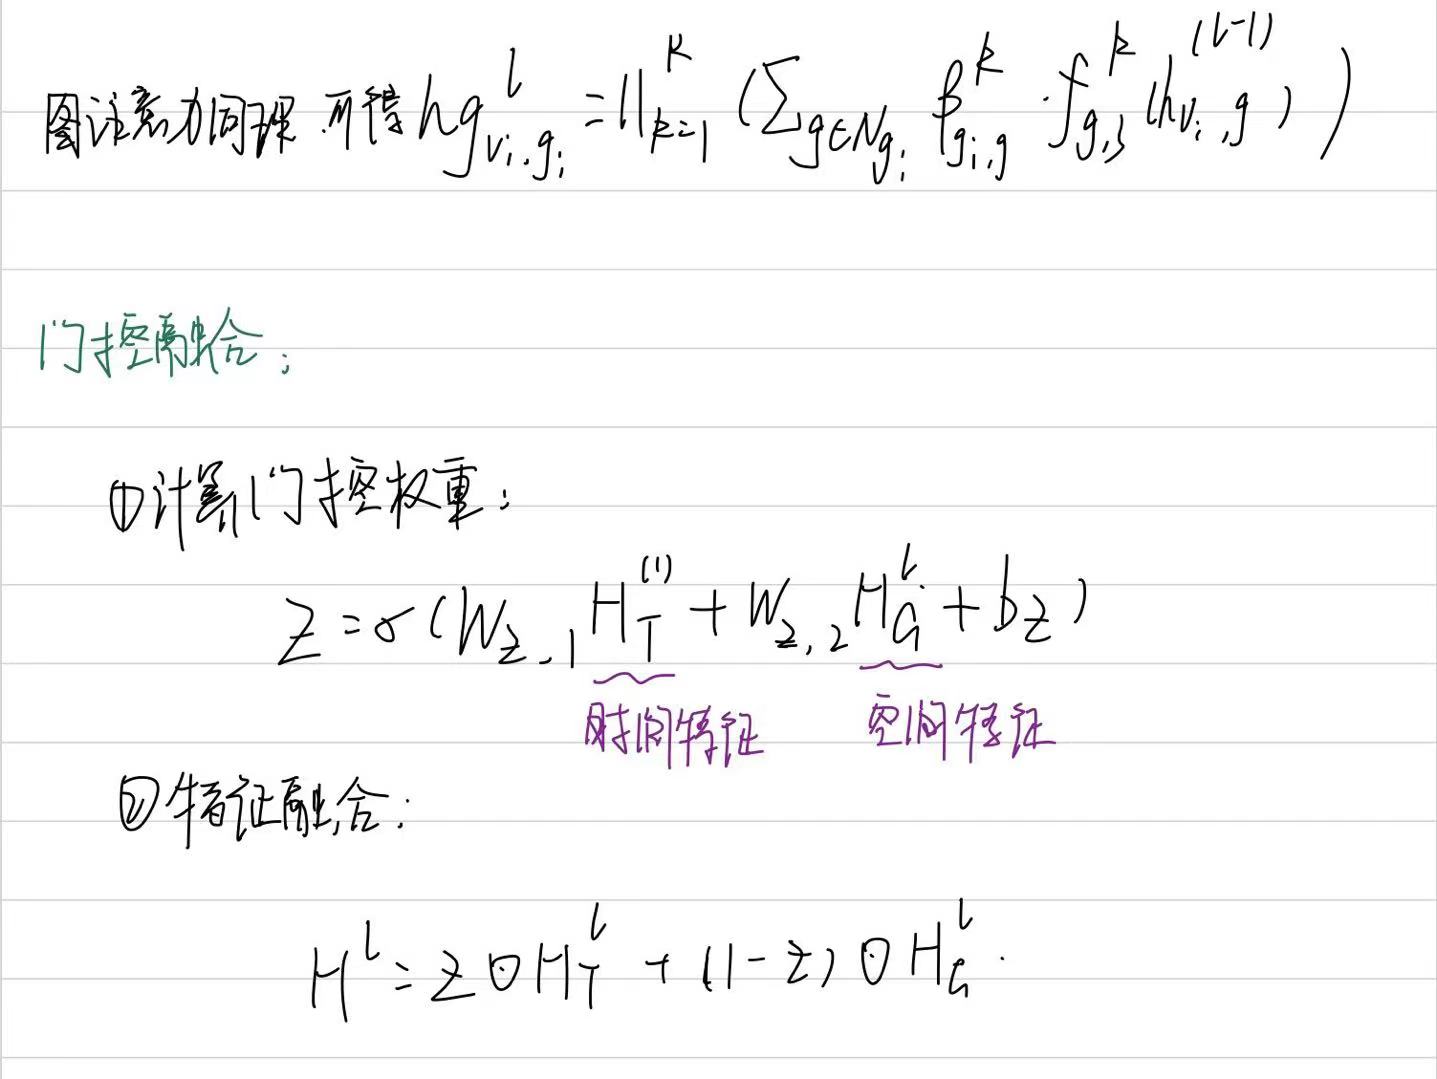 图注意力同理 可得 hg^l_{v_i,g_i} = ||^K_{k=1} (Σ_{g∈N_{g_i}} β^k_{g_i,g} · f^k_{g,3} (h^{(l-1)}_{v_i,g}))
门控融合:
①计算门控权重:
z = σ(W_{z,1} H_T^{(l)} + W_{z,2} H_G^l + b_z)
时间特征 空间特征
②特征融合:
H^l = z ⊙ H_T^l + (1-z) ⊙ H_G^l.